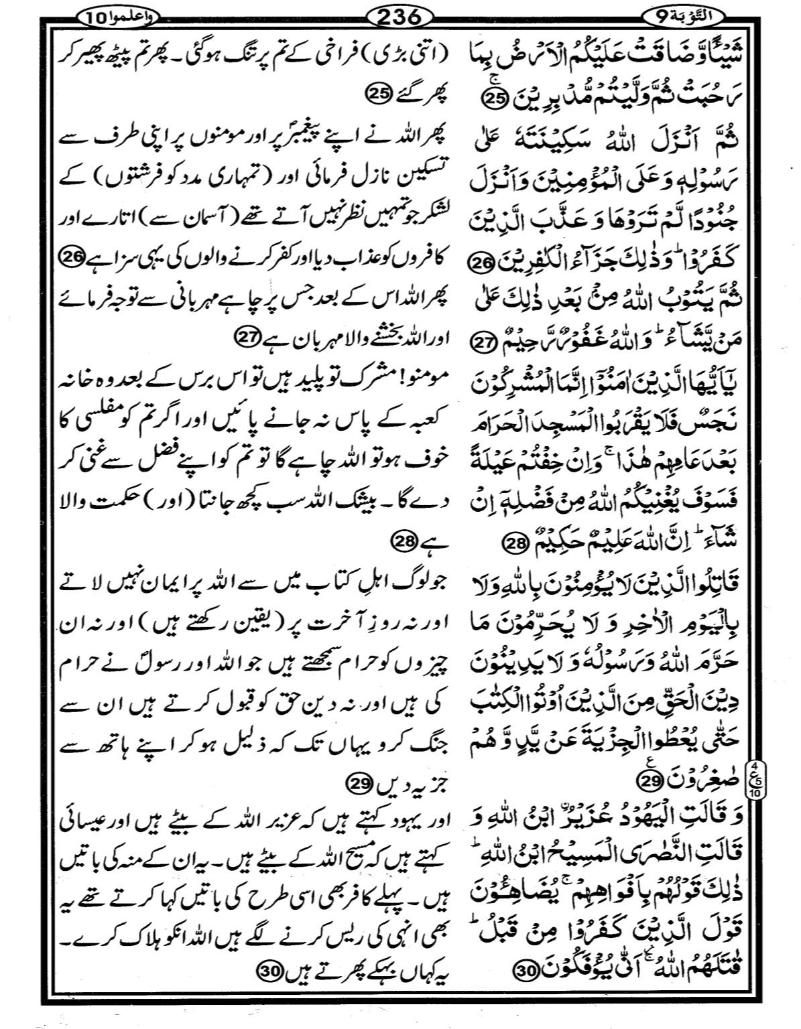 التَّوْبَة 9
236
واعلموا 10
شَيْـًٔا وَّضَاقَتْ عَلَيْكُمُ الْاَرْضُ بِمَا
رَحُبَتْ ثُمَّ وَلَّيْتُمْ مُّدْبِرِيْنَ ۚ 25
ثُمَّ اَنْزَلَ اللّٰهُ سَكِيْنَتَهٗ عَلٰى
رَسُوْلِهٖ وَعَلَى الْمُؤْمِنِيْنَ وَاَنْزَلَ
جُنُوْدًا لَّمْ تَرَوْهَا وَعَذَّبَ الَّذِيْنَ
كَفَرُوْا ؕ وَذٰلِكَ جَزَآءُ الْكٰفِرِيْنَ 26
ثُمَّ يَتُوْبُ اللّٰهُ مِنْۢ بَعْدِ ذٰلِكَ عَلٰى
مَنْ يَّشَآءُ ؕ وَاللّٰهُ غَفُوْرٌ رَّحِيْمٌ 27
يٰۤاَيُّهَا الَّذِيْنَ اٰمَنُوْۤا اِنَّمَا الْمُشْرِكُوْنَ
نَجَسٌ فَلَا يَقْرَبُوا الْمَسْجِدَ الْحَرَامَ
بَعْدَ عَامِهِمْ هٰذَا ۚ وَاِنْ خِفْتُمْ عَيْلَةً
فَسَوْفَ يُغْنِيْكُمُ اللّٰهُ مِنْ فَضْلِهٖۤ اِنْ
شَآءَ ؕ اِنَّ اللّٰهَ عَلِيْمٌ حَكِيْمٌ 28
قَاتِلُوا الَّذِيْنَ لَا يُؤْمِنُوْنَ بِاللّٰهِ وَلَا
بِالْيَوْمِ الْاٰخِرِ وَلَا يُحَرِّمُوْنَ مَا
حَرَّمَ اللّٰهُ وَرَسُوْلُهٗ وَلَا يَدِيْنُوْنَ
دِيْنَ الْحَقِّ مِنَ الَّذِيْنَ اُوْتُوا الْكِتٰبَ
حَتّٰى يُعْطُوا الْجِزْيَةَ عَنْ يَّدٍ وَّهُمْ
صٰغِرُوْنَ 29 ع
وَقَالَتِ الْيَهُوْدُ عُزَيْرُ ۨ ابْنُ اللّٰهِ وَ
قَالَتِ النَّصٰرَى الْمَسِيْحُ ابْنُ اللّٰهِ ؕ
ذٰلِكَ قَوْلُهُمْ بِاَفْوَاهِهِمْ ۚ يُضَاهِـُٔوْنَ
قَوْلَ الَّذِيْنَ كَفَرُوْا مِنْ قَبْلُ ؕ
قٰتَلَهُمُ اللّٰهُ ۚ اَنّٰى يُؤْفَكُوْنَ 30
(اتنی بڑی) فراخی کے تم پر تنگ ہوگئی۔ پھر تم پیٹھ پھیر کر
پھر گئے 25
پھر اللہ نے اپنے پیغمبرؐ پر اور مومنوں پر اپنی طرف سے
تسکین نازل فرمائی اور (تمہاری مدد کو فرشتوں) کے
لشکر جو تمہیں نظر نہیں آتے تھے (آسمان سے) اتارے اور
کافروں کو عذاب دیا اور کفر کرنے والوں کی یہی سزا ہے 26
پھر اللہ اس کے بعد جس پر چاہے مہربانی سے توجہ فرمائے
اور اللہ بخشنے والا مہربان ہے 27
مومنو! مشرک تو پلید ہیں تو اس برس کے بعد وہ خانہ
کعبہ کے پاس نہ جانے پائیں اور اگر تم کو مفلسی کا
خوف ہو تو اللہ چاہے گا تو تم کو اپنے فضل سے غنی کر
دے گا۔ بیشک اللہ سب کچھ جانتا (اور) حکمت والا
ہے 28
جو لوگ اہلِ کتاب میں سے اللہ پر ایمان نہیں لاتے
اور نہ روزِ آخرت پر (یقین رکھتے ہیں) اور نہ ان
چیزوں کو حرام سمجھتے ہیں جو اللہ اور رسولؐ نے حرام
کی ہیں اور نہ دین حق کو قبول کرتے ہیں ان سے
جنگ کرو یہاں تک کہ ذلیل ہو کر اپنے ہاتھ سے
جزیہ دیں 29
اور یہود کہتے ہیں کہ عزیر اللہ کے بیٹے ہیں اور عیسائی
کہتے ہیں کہ مسیح اللہ کے بیٹے ہیں۔ یہ ان کے منہ کی باتیں
ہیں۔ پہلے کافر بھی اسی طرح کی باتیں کہا کرتے تھے یہ
بھی انہی کی ریس کرنے لگے ہیں اللہ انکو ہلاک کرے۔
یہ کہاں بہکے پھرتے ہیں 30
4
ع 5
10